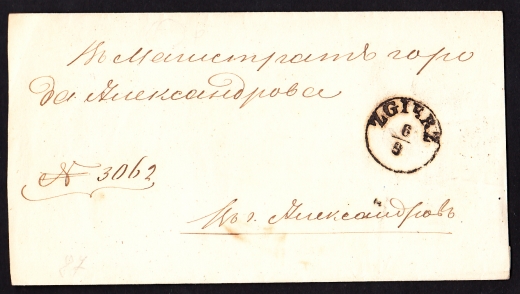 Въ Магистратъ горо
да Александрова
ZGIERZ
6
9
№ 3062
Въ г. Александровъ
87